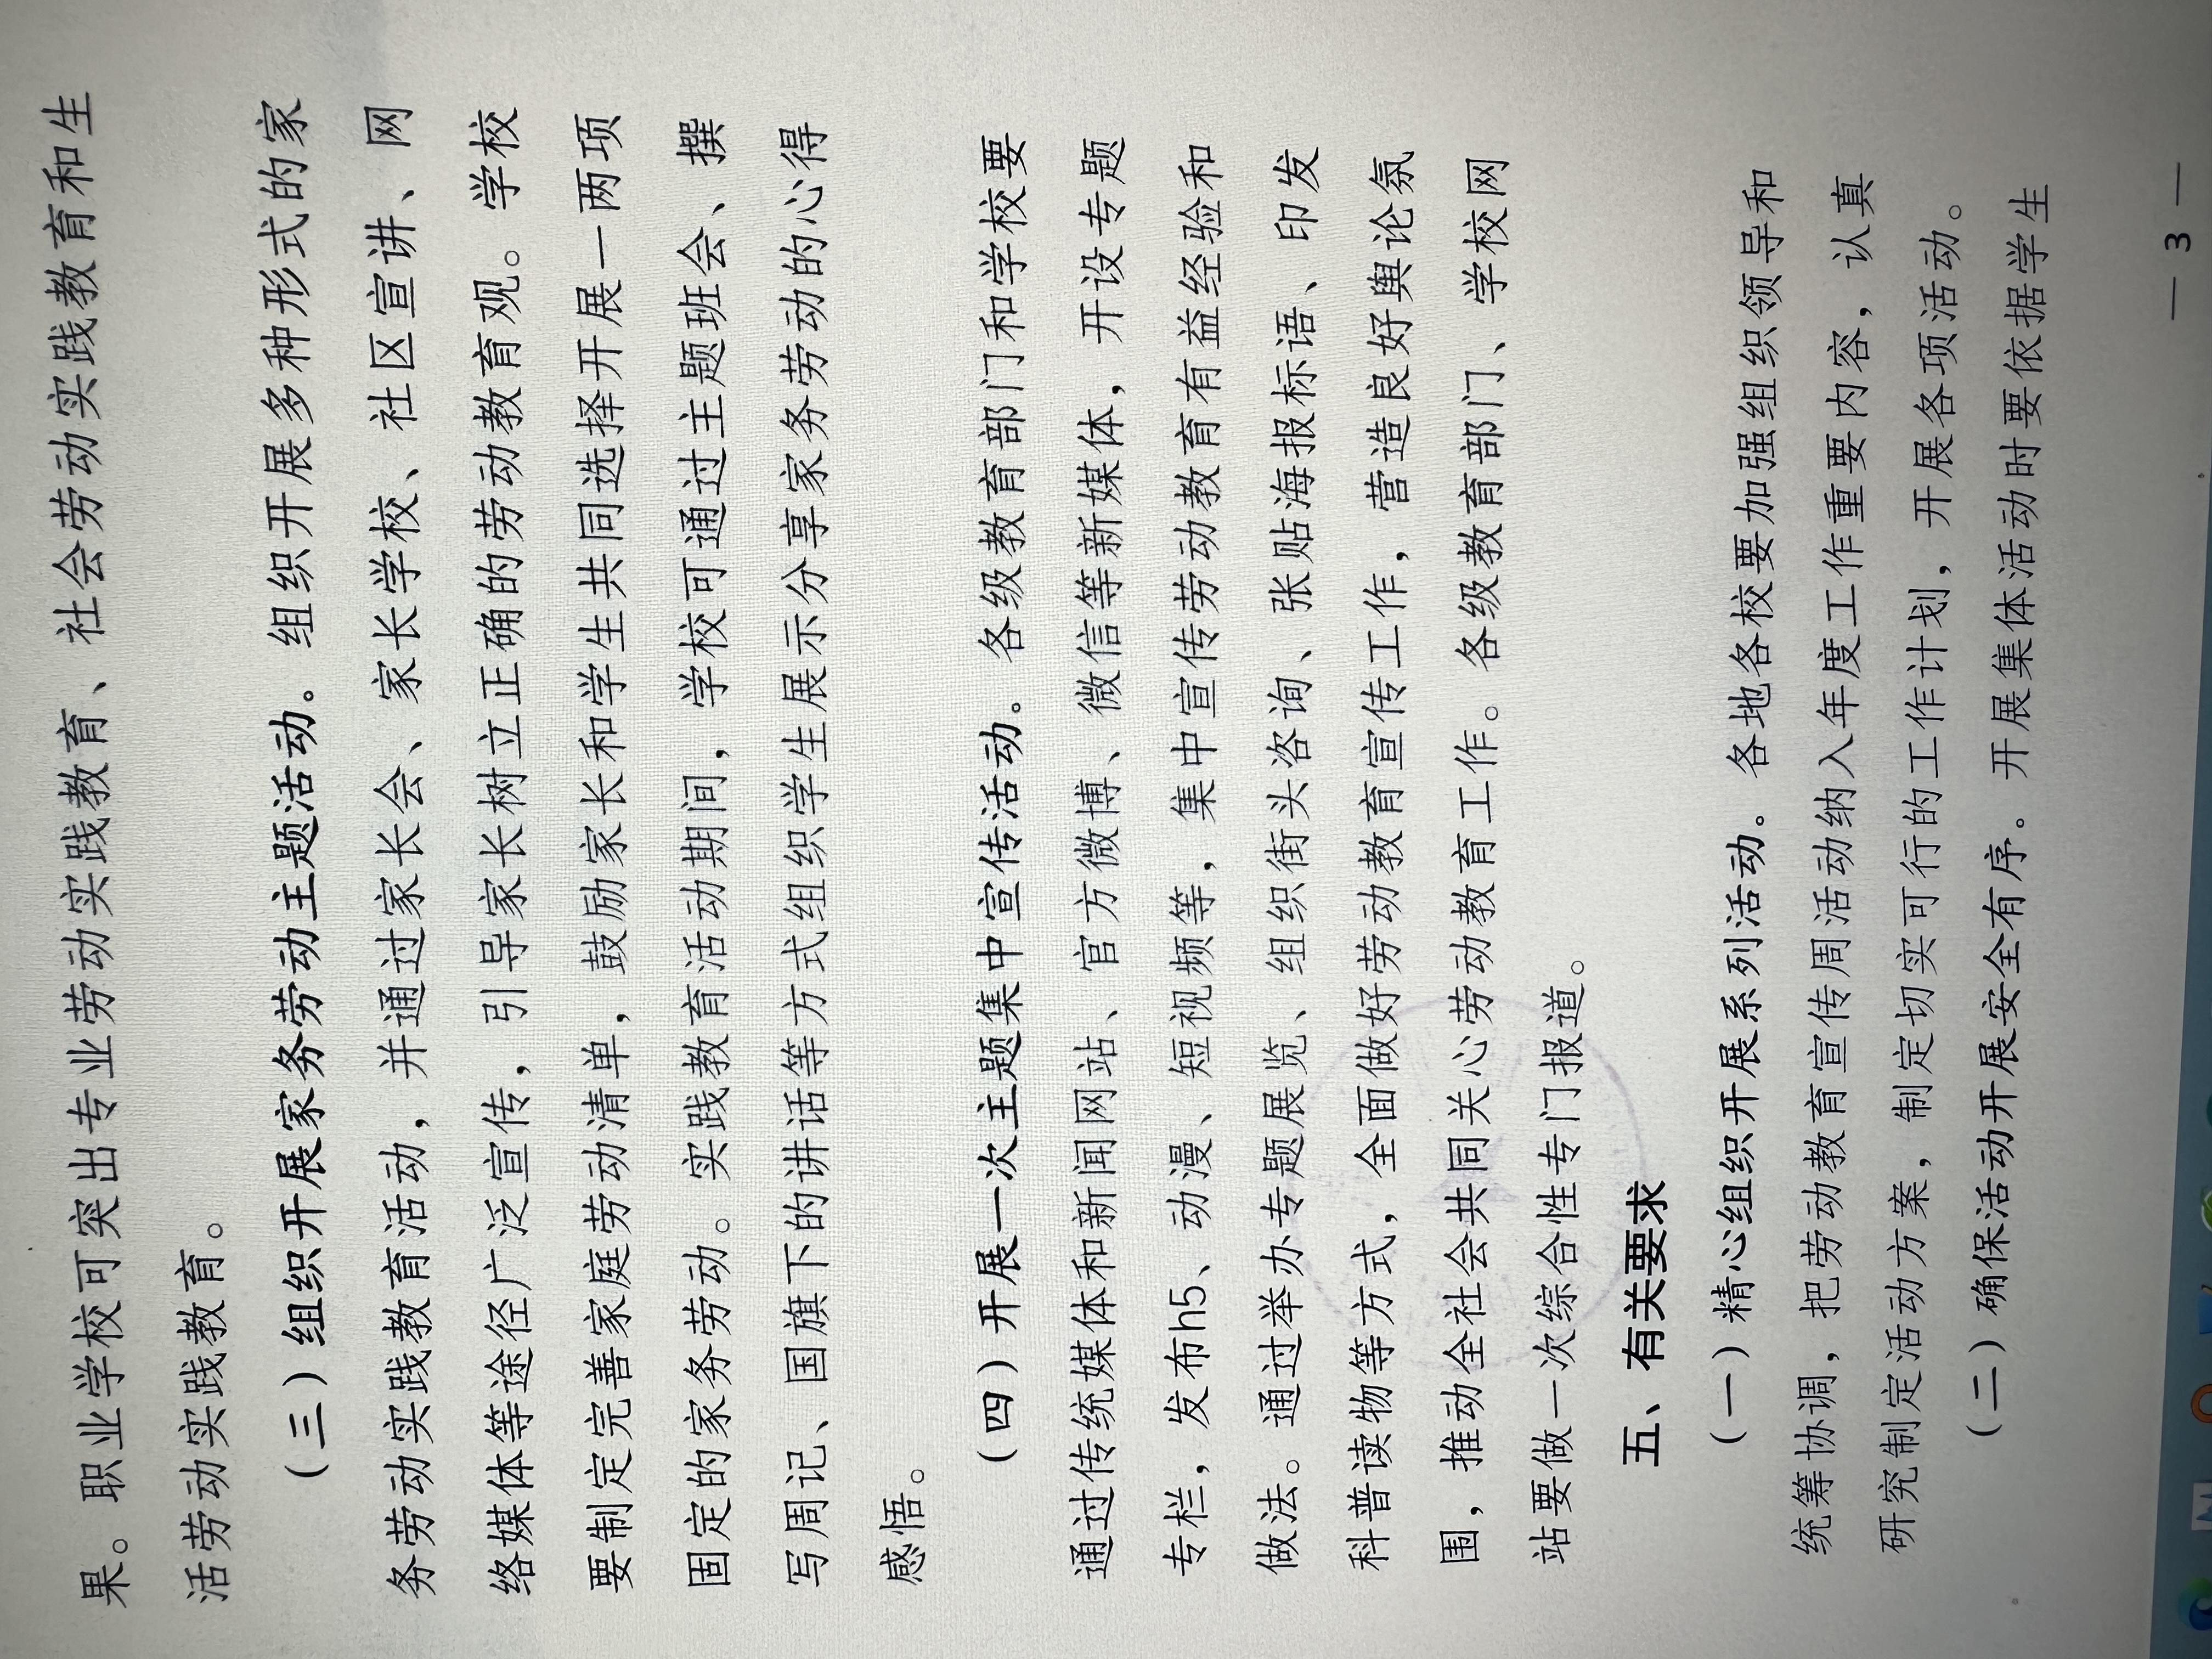 果。职业学校可突出专业劳动实践教育、社会劳动实践教育和生
活劳动实践教育。
（三）组织开展家务劳动主题活动。组织开展多种形式的家
务劳动实践教育活动，并通过家长会、家长学校、社区宣讲、网
络媒体等途径广泛宣传，引导家长树立正确的劳动教育观。学校
要制定完善家庭劳动清单，鼓励家长和学生共同选择开展一两项
固定的家务劳动。实践教育活动期间，学校可通过主题班会、撰
写周记、国旗下的讲话等方式组织学生展示分享家务劳动的心得
感悟。
（四）开展一次主题集中宣传活动。各级教育部门和学校要
通过传统媒体和新闻网站、官方微博、微信等新媒体，开设专题
专栏，发布h5、动漫、短视频等，集中宣传劳动教育有益经验和
做法。通过举办专题展览、组织街头咨询、张贴海报标语、印发
科普读物等方式，全面做好劳动教育宣传工作，营造良好舆论氛
围，推动全社会共同关心劳动教育工作。各级教育部门、学校网
站要做一次综合性专门报道。
五、有关要求
（一）精心组织开展系列活动。各地各校要加强组织领导和
统筹协调，把劳动教育宣传周活动纳入年度工作重要内容，认真
研究制定活动方案，制定切实可行的工作计划，开展各项活动。
（二）确保活动开展安全有序。开展集体活动时要依据学生
— 3 —